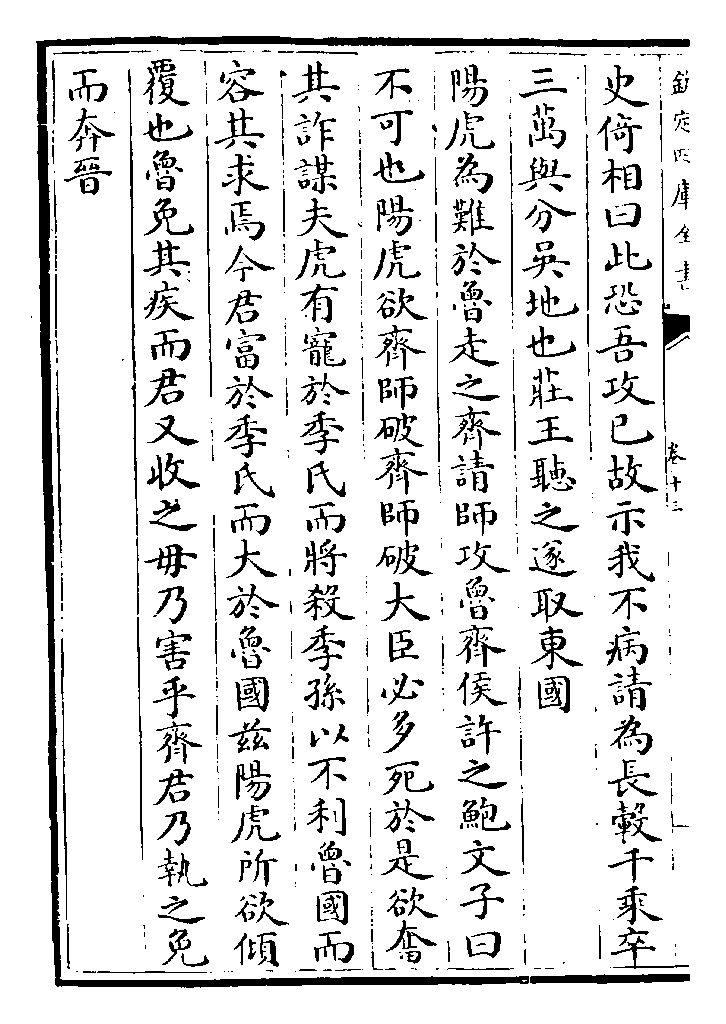 欽定四庫全書
卷十三
史倚相曰此恐吾攻已故示我不病請為長轂千乘卒
三萬與分吳地也莊王聽之遂取東國
陽虎為難於魯走之齊請師攻魯齊侯許之鮑文子曰
不可也陽虎欲齊師破齊師破大臣必多死於是欲奮
其詐謀夫虎有寵於季氏而將殺季孫以不利魯國而
容其求焉今君富於季氏而大於魯國茲陽虎所欲傾
覆也魯免其疾而君又收之毋乃害乎齊君乃執之免
而奔晉